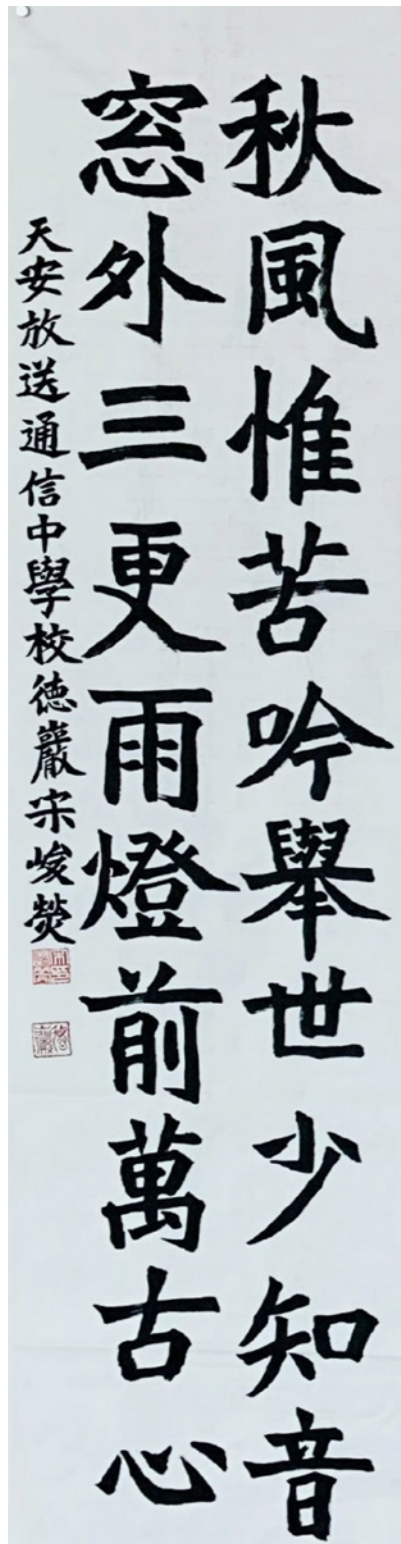 秋風惟苦吟舉世少知音
窓外三更雨燈前萬古心
天安放送通信中學校德巖宋峻熒